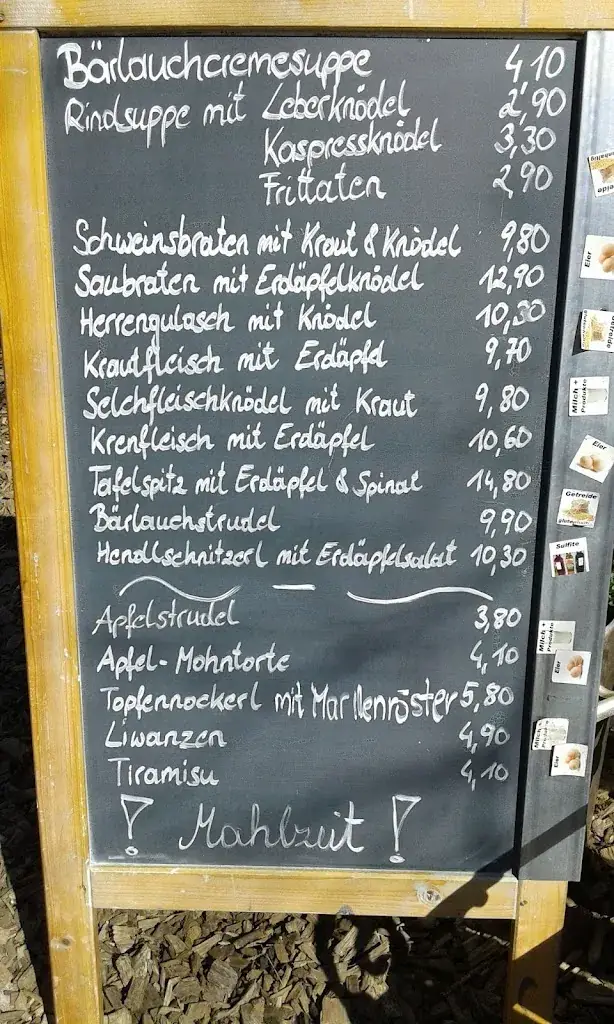 Bärlauchcremesuppe 4,10
Rindsuppe mit Leberknödel 2,90
Kaspressknödel 3,30
Frittaten 2,90
Schweinsbraten mit Kraut & Knödel 9,80
Saubraten mit Erdäpfelknödel 12,90
Herrengulasch mit Knödel 10,30
Krautfleisch mit Erdäpfel 9,70
Selchfleischknödel mit Kraut 9,80
Krenfleisch mit Erdäpfel 10,60
Tafelspitz mit Erdäpfel & Spinat 14,80
Bärlauchstrudel 9,90
Hendlschnitzerl mit Erdäpfelsalat 10,30
Apfelstrudel 3,80
Apfel-Mohntorte 4,10
Topfennockerl mit Marillenröster 5,80
Liwanzen 4,90
Tiramisu 4,10
! Mahlzeit !
Eier
Milch + Produkte
Eier
Getreide
Sulfite
Milch + Produkte
Eier
Milch +
Eier